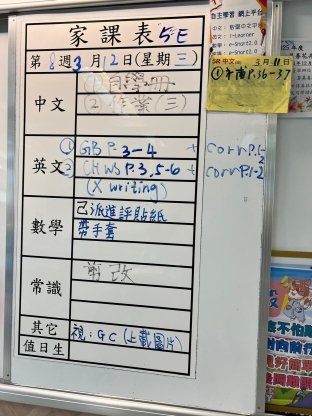 家課表 5E
第 8 週 3 月 12 日(星期 三)
中文
(2) 作業 (三)
英文
① GB P. 3-4 + corr P.1-2
② CHWS P.3, 5-6 + corr P.1-2
(X writing)
數學
已派進評貼紙
帶手套
常識
其它
視: GC (上載圖片)
值日生
自主學習 網上平台
英文: i-Learner
e-Smart2.0
e-Smart2.0
5R 中文 3月 11日
P.36-37